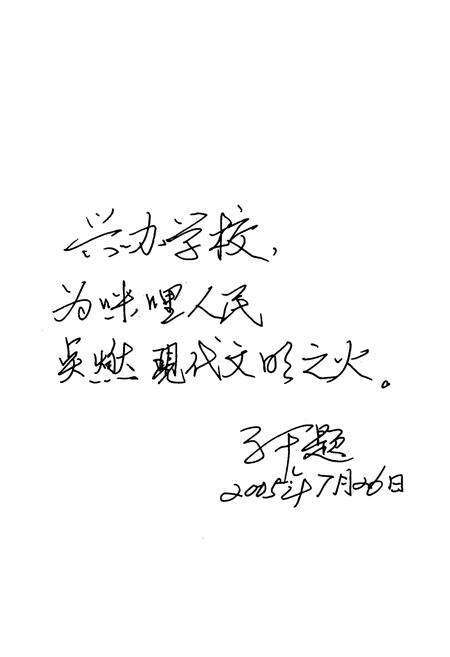 兴办学校，
为咪哩人民
点燃现代文明之火。
子干题
2005年7月26日